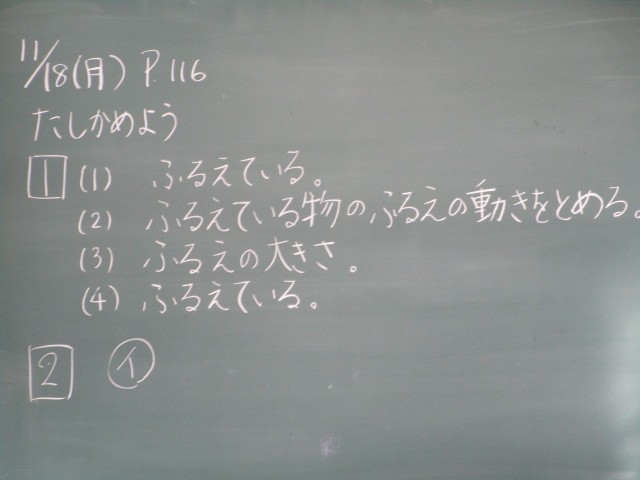 11/18(月) P.116
たしかめよう
1 (1) ふるえている。
(2) ふるえている物のふるえの動きをとめる。
(3) ふるえの大きさ。
(4) ふるえている。
2 イ